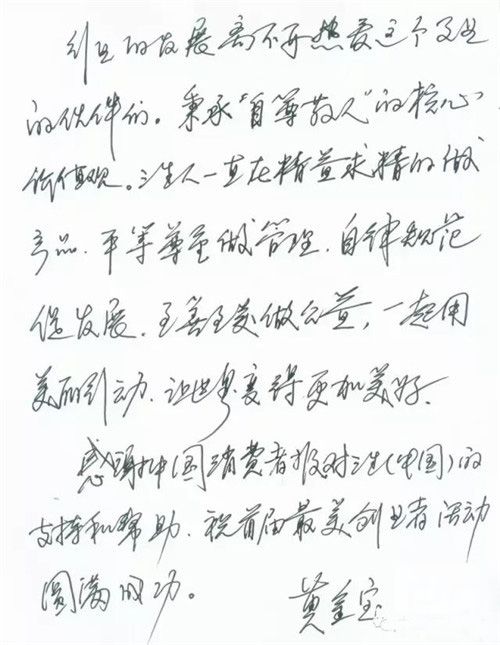 行业的发展离不开热爱这个业
的伙伴们。秉承“自尊敬人”的核心
价值观。三生人一直在精益求精的做
产品、平等尊重做管理、自律规范
促发展、至善至美做公益，一起用
美丽行动、让世界变得更加美好、
感谢中国消费者报对三生(中国)的
支持和帮助、祝首届最美创业者活动
圆满成功。
黄金宝